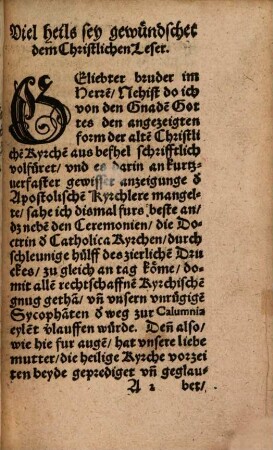 Viel heils sey gewündschet
dem Christlichen Leser.
GEliebter bruder im
Herrẽ/ Nehist do ich
von den Gnadẽ Got
tes den angezeigten
form der altẽ Christli
chẽ Kyrchẽ aus befhel schrifftlich
volfüret/ vnd es darin an kurtz-
uerfaster gewisser anzeigunge d̕
Apostolischẽ Kyrchlere mangel-
te/ sahe ich dismal furs beste an/
dz nebẽ den Ceremonien/ die Do-
ctrin d̕ Catholica Kyrchen/ durch
schleunige hülff des zierlichẽ Dru
ckes/ zu gleich an tag kõme/ do-
mit allẽ rechtschaffnẽ Kyrchischẽ
gnug gethã/ vñ vnsern vnrügigẽ
Sycophãten d̕ weg zur Calumnia
eylẽt v̕lauffen würde. Deñ also/
wie hie fur augẽ/ hat vnsere liebe
mutter/ die heilige Kyrche vorzei
ten beyde geprediget vñ geglau-
A 2 bet/